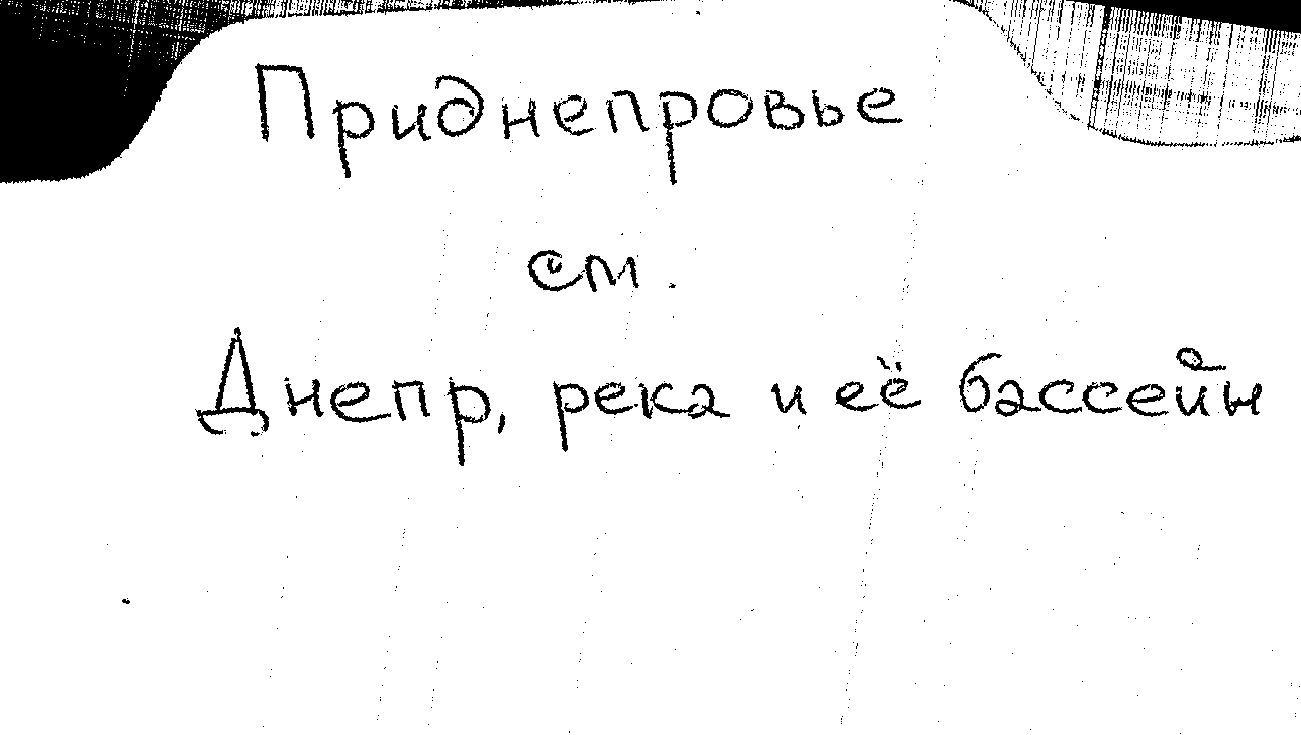 Приднепровье
см.
Днепр, река и её бассейн